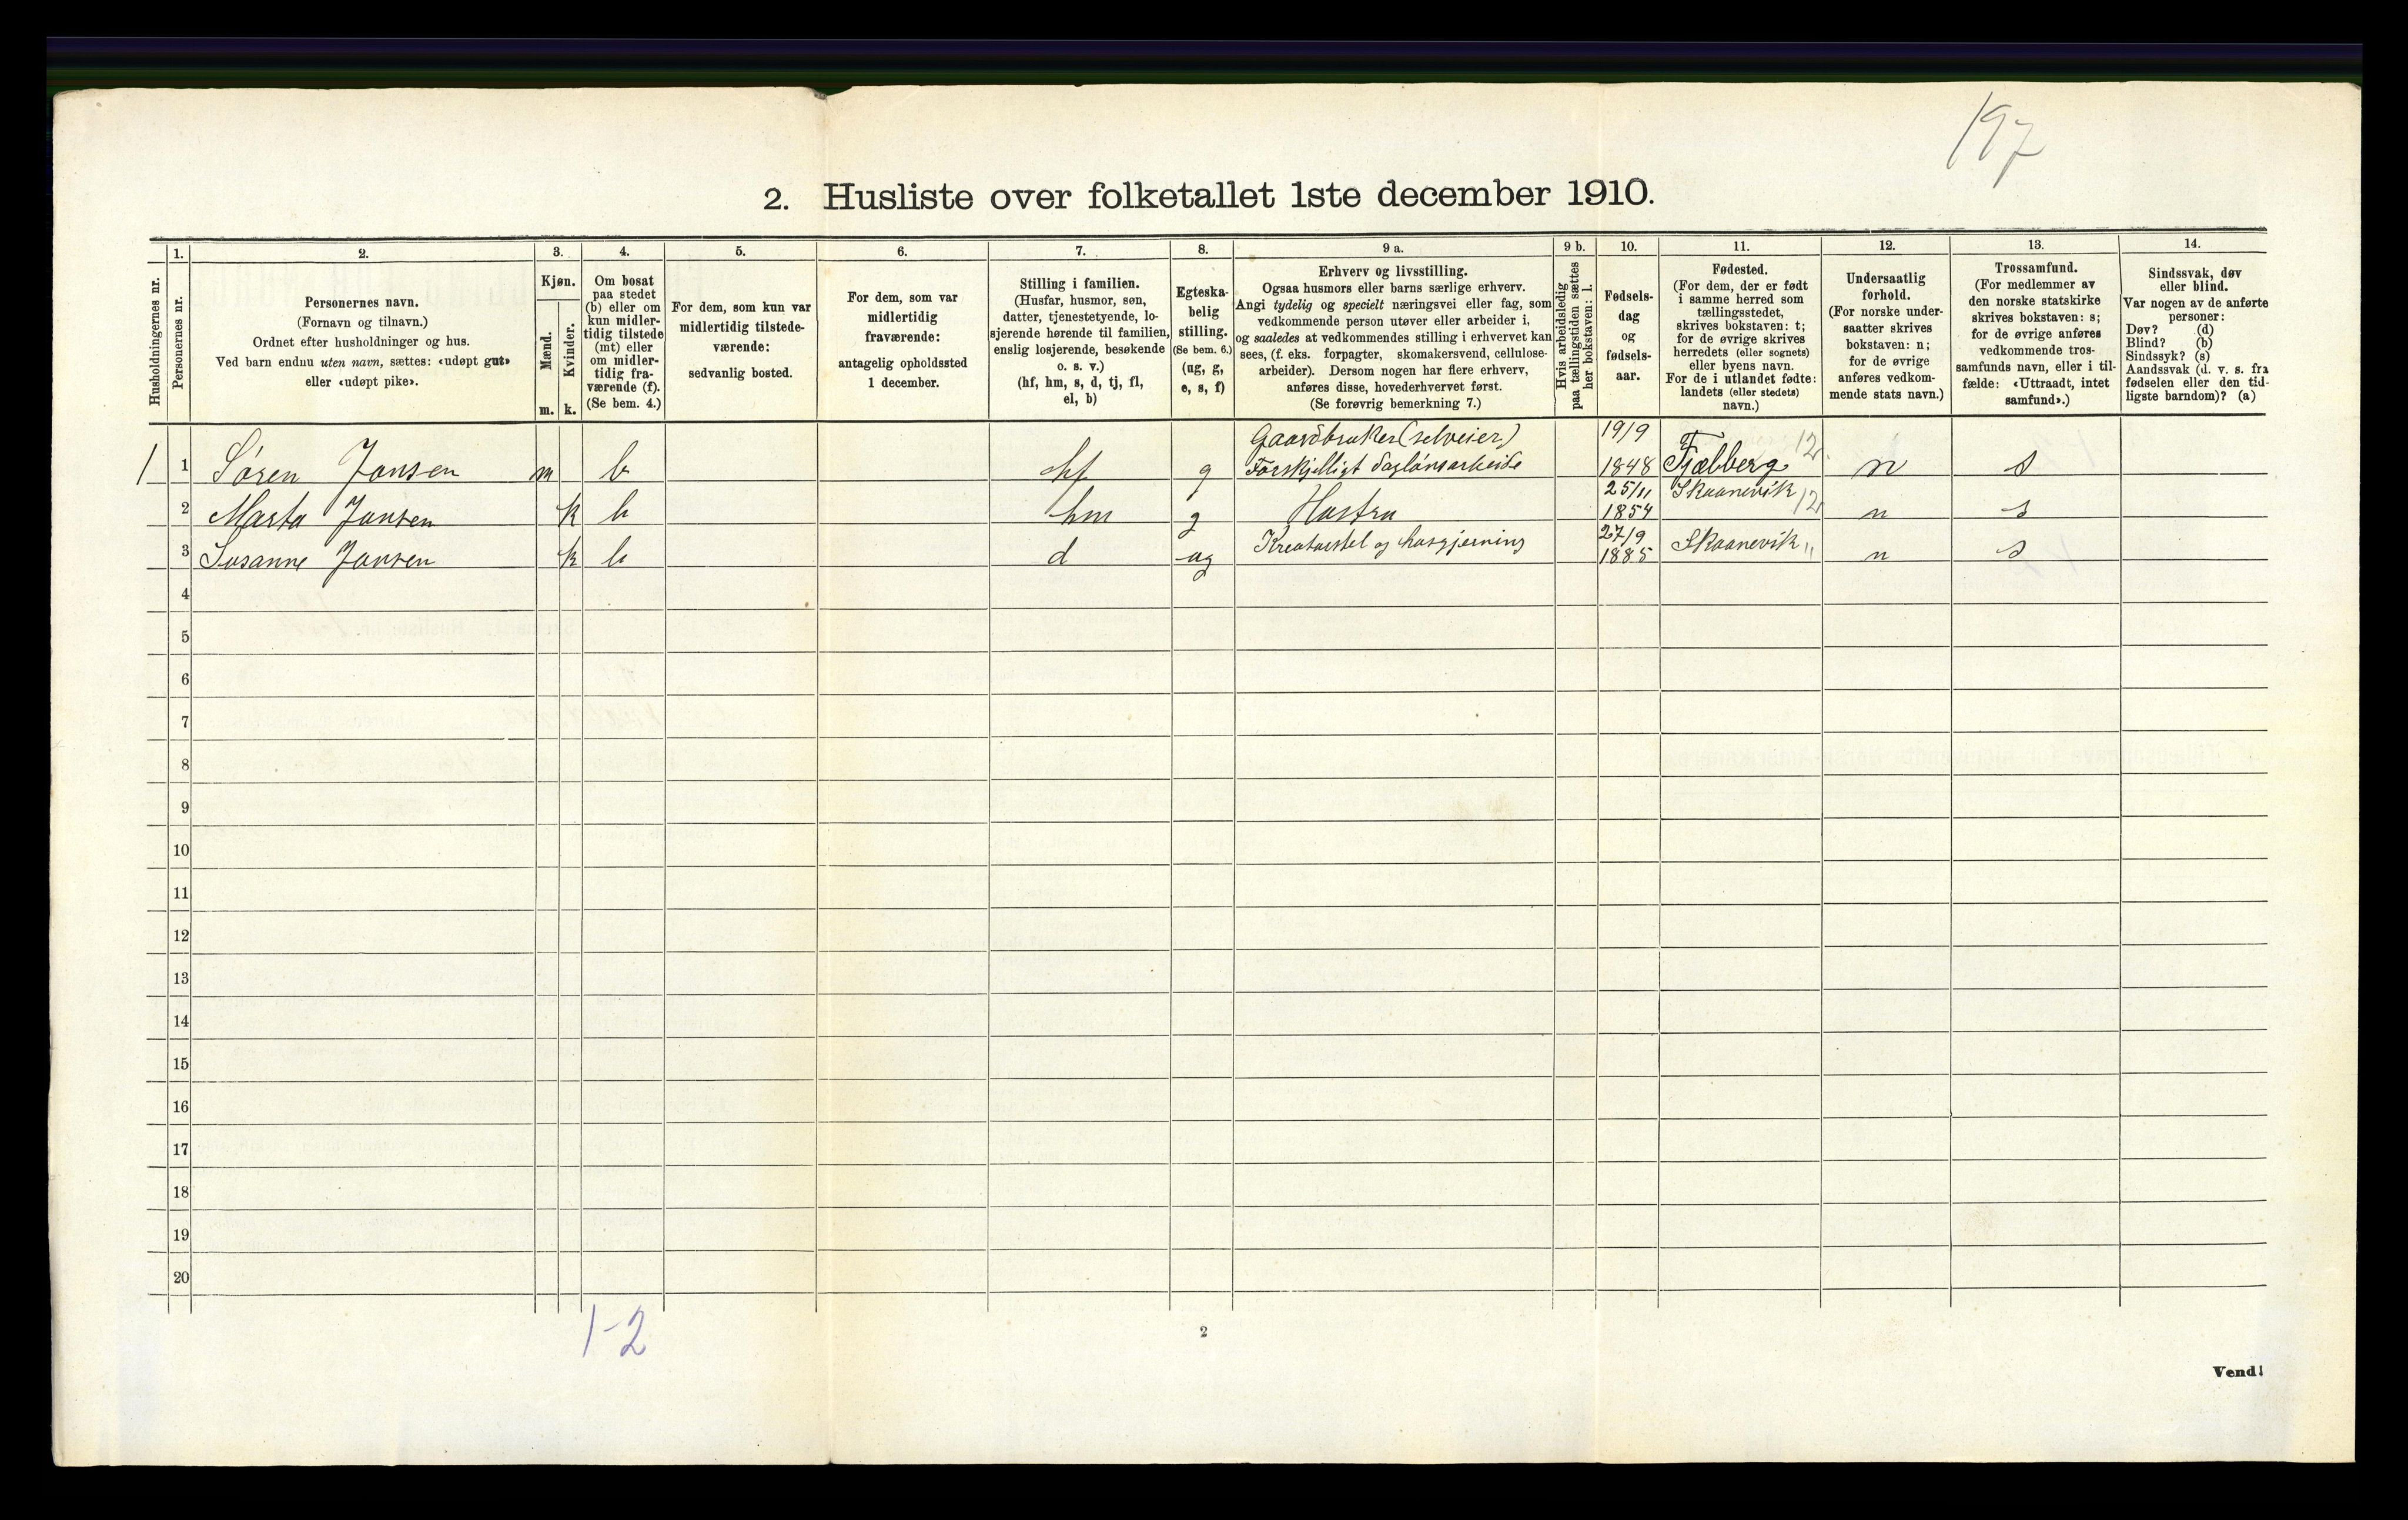 197
2. Husliste over folketallet 1ste december 1910.
Husholdningernes nr.
1.
Personernes nr.
2.
Personernes navn.
(Fornavn og tilnavn.)
Ordnet efter husholdninger og hus.
Ved barn endnu uten navn, sættes: «udøpt gut»
eller «udøpt pike».
3.
Kjøn.
Mænd.
Kvinder.
m. k.
4.
Om bosat
paa stedet
(b) eller om
kun midler-
tidig tilstede
(mt) eller
om midler-
tidig fra-
værende (f).
(Se bem. 4.)
5.
For dem, som kun var
midlertidig tilstede-
værende:
sedvanlig bosted.
6.
For dem, som var
midlertidig
fraværende:
antagelig opholdssted
1 december.
7.
Stilling i familien.
(Husfar, husmor, søn,
datter, tjenestetyende, lo-
sjerende hørende til familien,
enslig losjerende, besøkende
o. s. v.)
(hf, hm, s, d, tj, fl,
el, b)
8.
Egteska-
belig
stilling.
(Se bem. 6.)
(ug, g,
e, s, f)
9 a.
Erhverv og livsstilling.
Ogsaa husmors eller barns særlige erhverv.
Angi tydelig og specielt næringsvei eller fag, som
vedkommende person utøver eller arbeider i,
og saaledes at vedkommendes stilling i erhvervet kan
sees, (f. eks. forpagter, skomakersvend, cellulose-
arbeider). Dersom nogen har flere erhverv,
anføres disse, hovederhvervet først.
(Se forøvrig bemerkning 7.)
9 b.
Hvis arbeidsledig
paa tællingstiden sættes
her bokstaven: l.
10.
Fødsels-
dag
og
fødsels-
aar.
11.
Fødested.
(For dem, der er født
i samme herred som
tællingsstedet,
skrives bokstaven: t;
for de øvrige skrives
herredets (eller sognets)
eller byens navn.
For de i utlandet fødte:
landets (eller stedets)
navn.)
12.
Undersaatlig
forhold.
(For norske under-
saatter skrives
bokstaven: n;
for de øvrige
anføres vedkom-
mende stats navn.)
13.
Trossamfund.
(For medlemmer av
den norske statskirke
skrives bokstaven: s;
for de øvrige anføres
vedkommende tros-
samfunds navn, eller i til-
fælde: «Uttraadt, intet
samfund».)
14.
Sindssvak, døv
eller blind.
Var nogen av de anførte
personer:
Døv? (d)
Blind? (b)
Sindssyk? (s)
Aandssvak (d. v. s. fra
fødselen eller den tid-
ligste barndom)? (a)
Gaardbruker (selveier) 19/9 12
1 1 Søren Jansen m b hf g Forskjelligt daglönsarbeide 1848 Fjælberg n s
25/11 Skaanevik 12
2 Marta Jansen k b hm g Hustru 1854 n s
27/9
3 Susanne Jansen k b d ug Kreaturstel og husgjerning 1885 Skaanevik " n s
4
5
6
7
8
9
10
11
12
13
14
15
16
17
18
19
20
1-2
2
Vend!